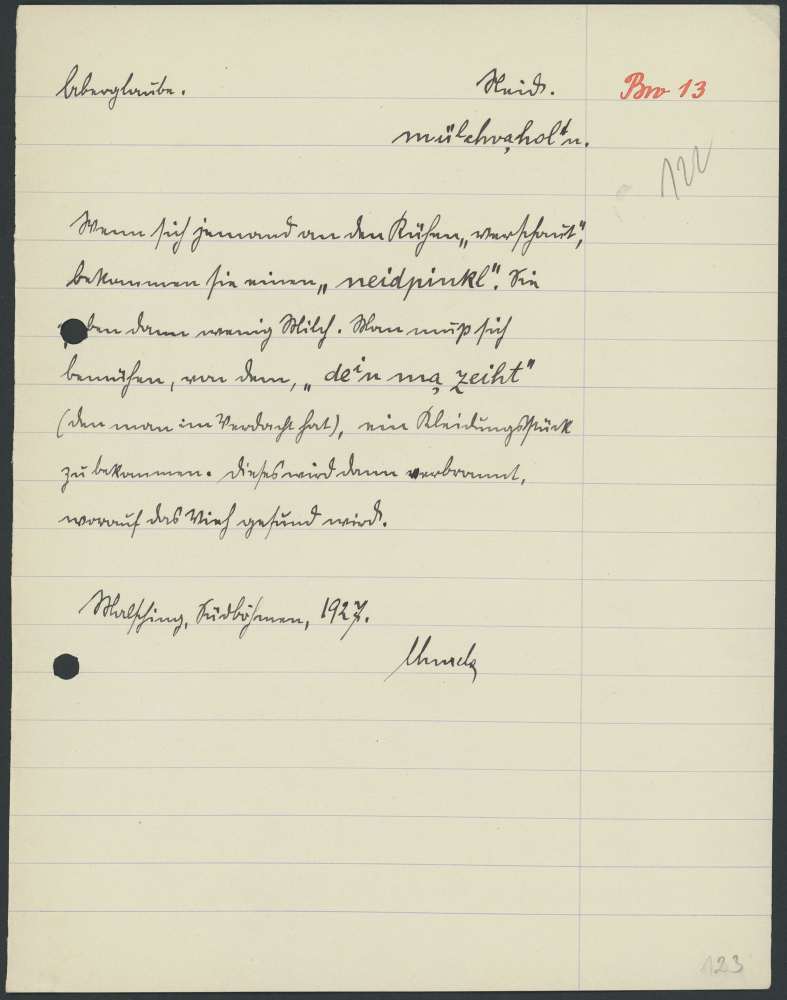 Aberglaube. Neid. Bro 13
mülchvahol't'n.
122
Wenn sich jemand an den Kühen „verschaut",
bekommen sie einen „neidpinkl". Sie
ben dann wenig Milch. Man muß sich
bemühen, von dem, „deⁱn mą zeiht"
(den man im Verdacht hat), ein Kleidungsstück
zu bekommen. Dieses wird dann verbrannt,
worauf das Vieh gesund wird.
Malsching, Südböhmen, 1927.
123